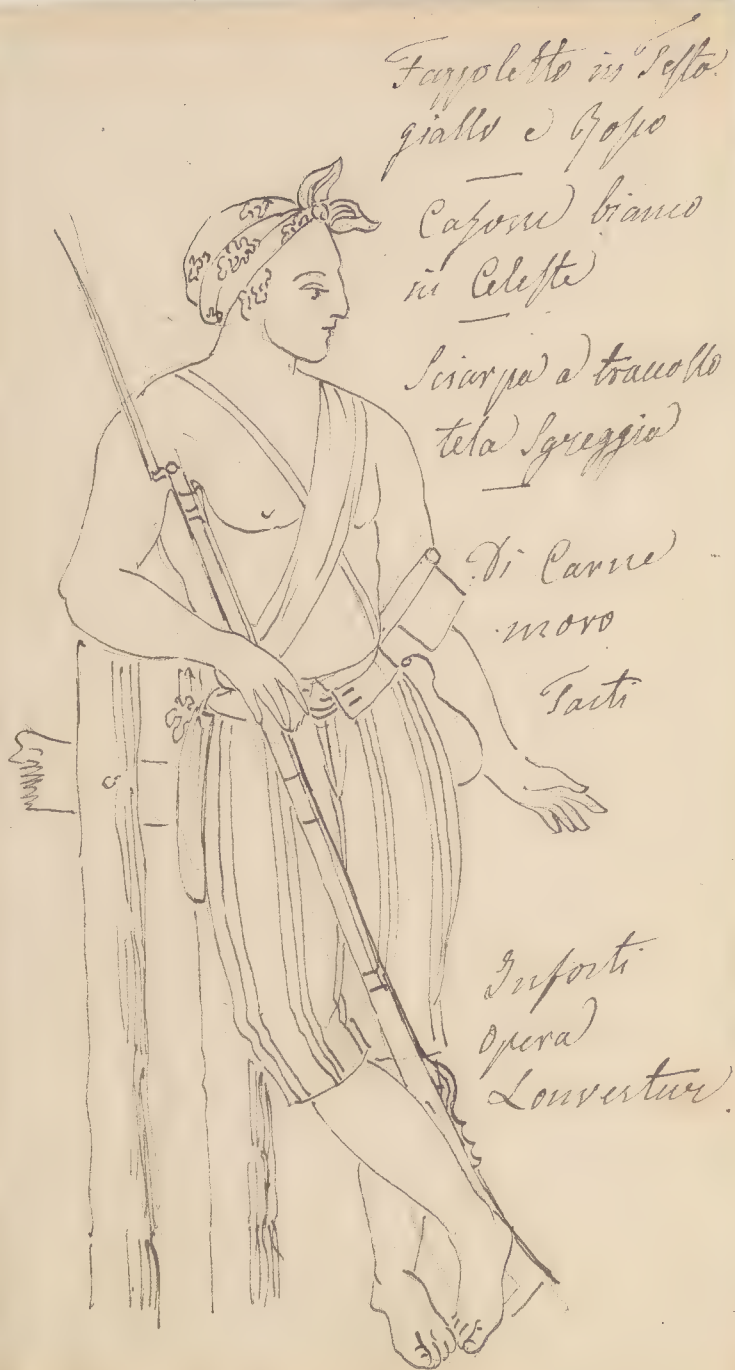 Fazzoletto in Testa
giallo e Rosso
Cazone bianco
in Celeste
Sciarpa a traccollo
tela Sgreggia
Di Carne
moro
Insorti
opera
Louvertur.